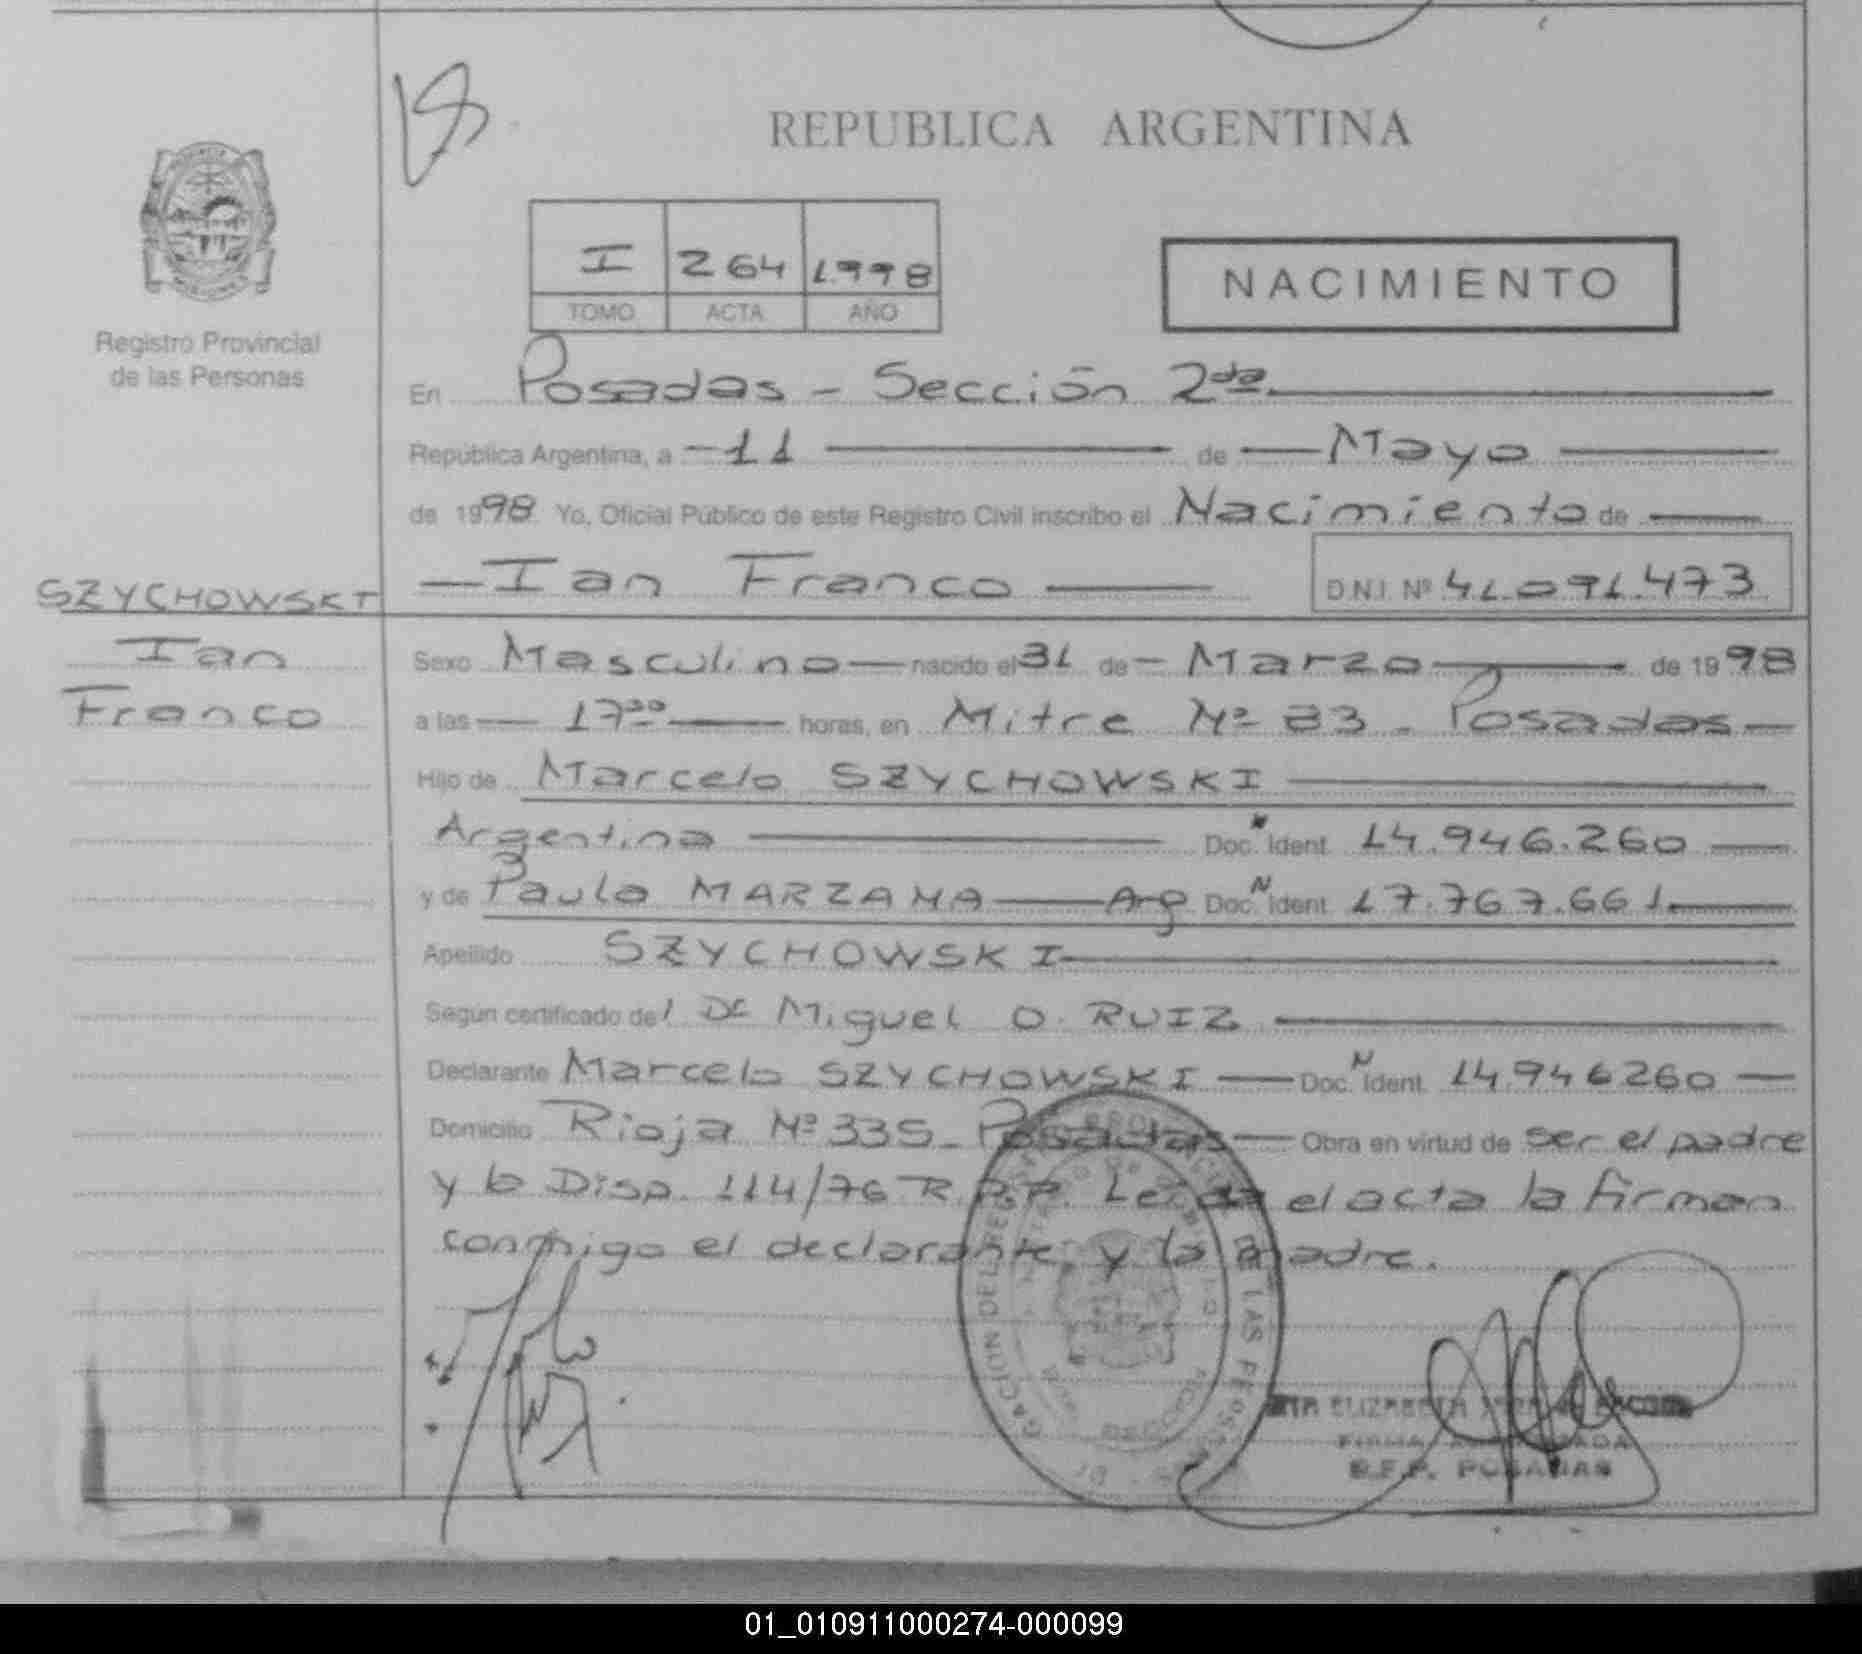 REPUBLICA ARGENTINA
I 264 1998
TOMO ACTA AÑO
NACIMIENTO
Registro Provincial
de las Personas
En Posadas - Sección 2da
República Argentina, a - 11 de Mayo
de 1998 Yo, Oficial Público de este Registro Civil inscribo el Nacimiento de
Ian Franco
D.N.I. Nº 41.091.473
SZYCHOWSKI
Ian
Franco
Sexo Masculino nacido el 31 de Marzo de 1998
a las 17 horas, en Mitre Nº 83 - Posadas
Hijo de Marcelo SZYCHOWSKI
Argentina Doc. Ident. 14.946.260
y de Paula MARZANA Arg Doc. N Ident. 17.767.661
Apellido SZYCHOWSKI
Según certificado del Dr Miguel O. RUIZ
Declarante Marcelo SZYCHOWSKI Doc. N Ident. 14946260
Domicilio Rioja Nº 335 - Posadas Obra en virtud de ser el padre
y la Disp. 114/76 R.P.P. Leída el acta la firman
conmigo el declarante y la madre.
ELIZABETH
FIRMA
POSADAS
01_010911000274-000099